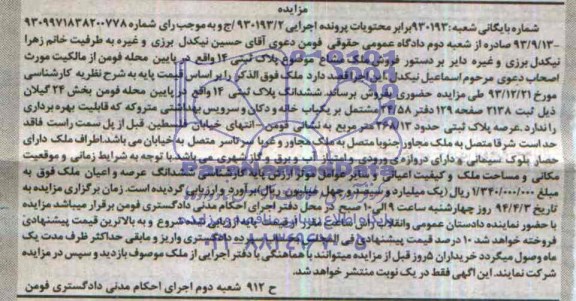 مزایده
شماره بایگانی شعبه: ۹۳۰۱۹۳ برابر محتویات پرونده اجرایی ۹۳۰۱۹۳/۲ ج/ و به موجب رای شماره ۹۳۰۹۹۷۱۸۳۸۲۰۰۷۷۸
-۹۳/۹/۱۳ صادره از شعبه دوم دادگاه عمومی حقوقی فومن دعوی آقای حسین نیکدل برزی و غیره به طرفیت خانم زهرا
نیکدل برزی و غیره دایر بر دستور فروش ملک مشاع موضوع پلاک ثبتی ۱۴ واقع در پایین محله فومن از مالکیت مورث
اصحاب دعوی مرحوم اسماعیل نیکدل قصد دارد ملک فوق الذکر را بر اساس قیمت پایه به شرح نظریه کارشناسی
مورخ ۹۳/۱۲/۲۱ طی مزایده حضوری بفروش برساند. ششدانگ پلاک ثبتی ۱۴ واقع در پایین محله فومن بخش ۲۴ گیلان
ذیل ثبت ۲۱۳۸ صفحه ۱۲۹ دفتر ۲۴/۵۸ مشتمل بر یکباب خانه و دکان و سرویس بهداشتی متروکه که قابلیت بهره برداری
را ندارد. عرصه پلاک ثبتی حدود ۲۶۸/۱۳ متر مربع به نشانی فومن - انتهای خیابان فلسطین قبل از پل سمت راست فاقد
حد است شرقا متصل به ملک مجاور جنوبا متصل به ملک مجاور و غربا سرتاسر متصل به خیابان می باشد اطراف ملک دارای
حصار بلوک سیمانی و دارای دروازه ورودی و امتیاز آب و برق و گاز شهری می باشد با توجه به شرایط زمانی و موقعیت
مکانی و مساحت ملک و کیفیت اعیانی و سایر عوامل موثر ارزش پایه کارشناسی ششدانگ عرصه و اعیان ملک فوق به
مبلغ ۱/۳۴۰/۰۰۰/۰۰۰ ریال (یک میلیارد و سیصد و چهل میلیون ریال) برآورد و ارزیابی گردیده است. زمان برگزاری مزایده به
تاریخ ۹۴/۴/۳ روز چهارشنبه ساعت ۹ الی ۱۰ صبح در محل دفتر اجرای احکام مدنی دادگستری فومن برقرار میباشد مزایده
با حضور نماینده دادستان عمومی وانقلاب راس ساعت مقرر از قیمت پایه شروع و به بالاترین قیمت پیشنهادی
فروخته خواهد شد ۱۰ درصد قیمت پیشنهادی فی المجلس دادگستری واریز و مابقی حداکثر ظرف مدت یک
ماه وصول میگردد خریداران ۵ روز قبل از مزایده میتوانند با هماهنگی با دفتر اجرایی از ملک موصوف بازدید و سپس در مزایده
شرکت نمایند. این آگهی فقط در یک نوبت منتشر خواهد شد.
ح ۹۱۲ شعبه دوم اجرای احکام مدنی دادگستری فومن